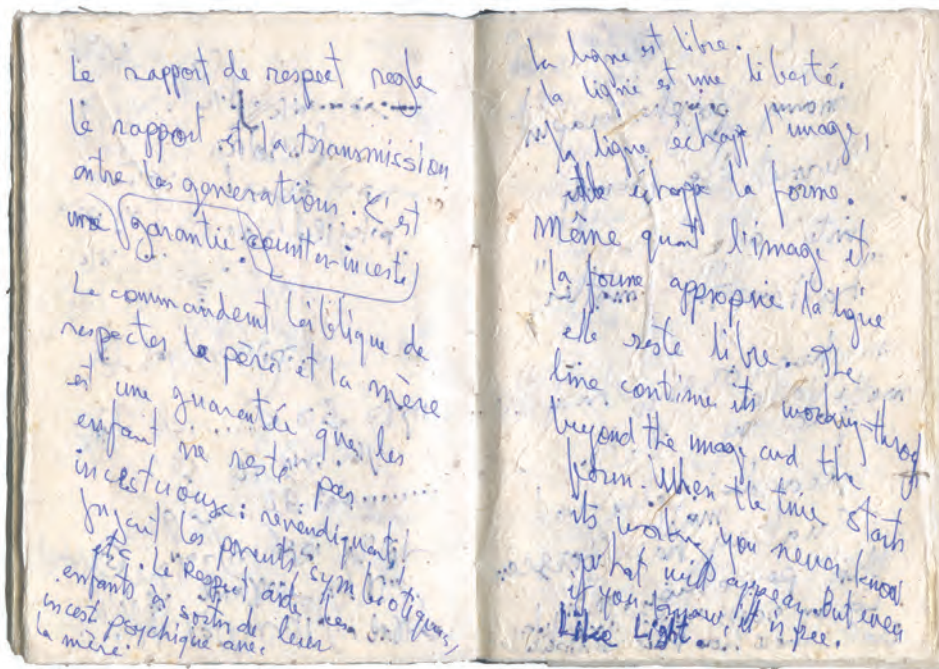 Le rapport de respect regle
le rapport et la transmission
entre les generations. C'est
une garantie counter-inceste
Le commandement biblique de
respecter le père et la mère
est une guarantée que les
enfant ne reste pas
incestuouse: revendiquant
jugant les parents, symbiotiques,
etc. Le Respect aide les
enfants à sortir de leur
incest psychique avec
la mère.
La ligne est libre.
la ligne est une liberté.
la ligne echapp l'image,
elle échappe la forme.
Même quant l'image et
la forme approprie la ligne
elle reste libre. The
line continue its working-throug
beyond the image and the
form. When the line starts
its working you never know
what will appear. But even
if you know, it is free.
Like Light.